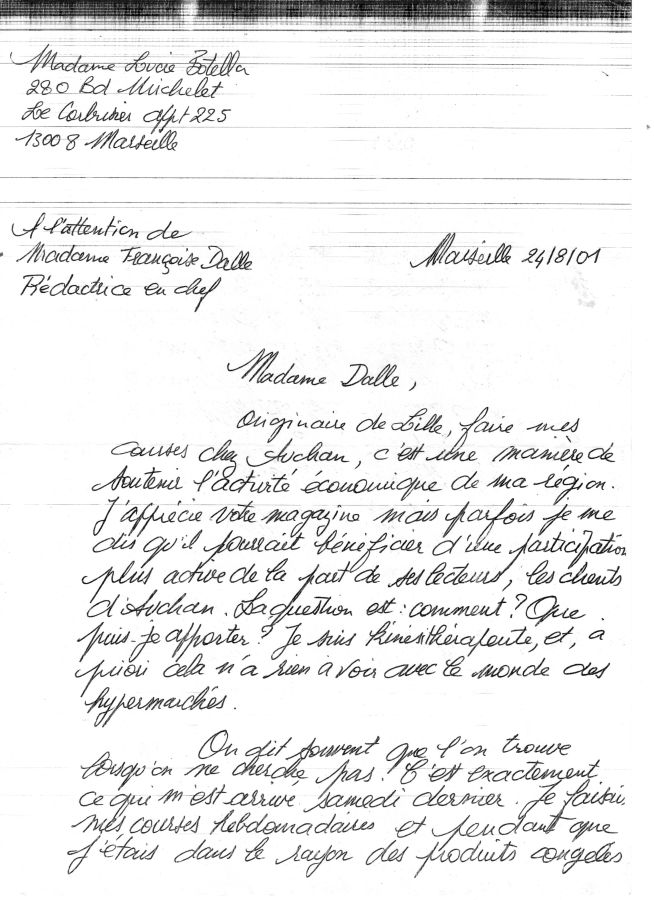 Madame Lucie Botella
280 Bd Michelet
Le Corbusier appt 225
13008 Marseille
A l'attention de
Madame Françoise Dalle
Rédactrice en chef
Marseille 24/8/01
Madame Dalle,
Originaire de Lille, faire mes
courses chez Auchan, c'est une manière de
soutenir l'activité économique de ma région.
J'apprécie votre magazine mais parfois je me
dis qu'il pourrait bénéficier d'une participation
plus active de la part de ses lecteurs, les clients
d'Auchan. La question est : comment ? Que
puis-je apporter ? Je suis kinésithérapeute, et, a
priori cela n'a rien à voir avec le monde des
hypermarchés.
On dit souvent que l'on trouve
lorsqu'on ne cherche pas. C'est exactement
ce qui m'est arrivé samedi dernier. Je faisais
mes courses hebdomadaires et pendant que
j'étais dans le rayon des produits congelés